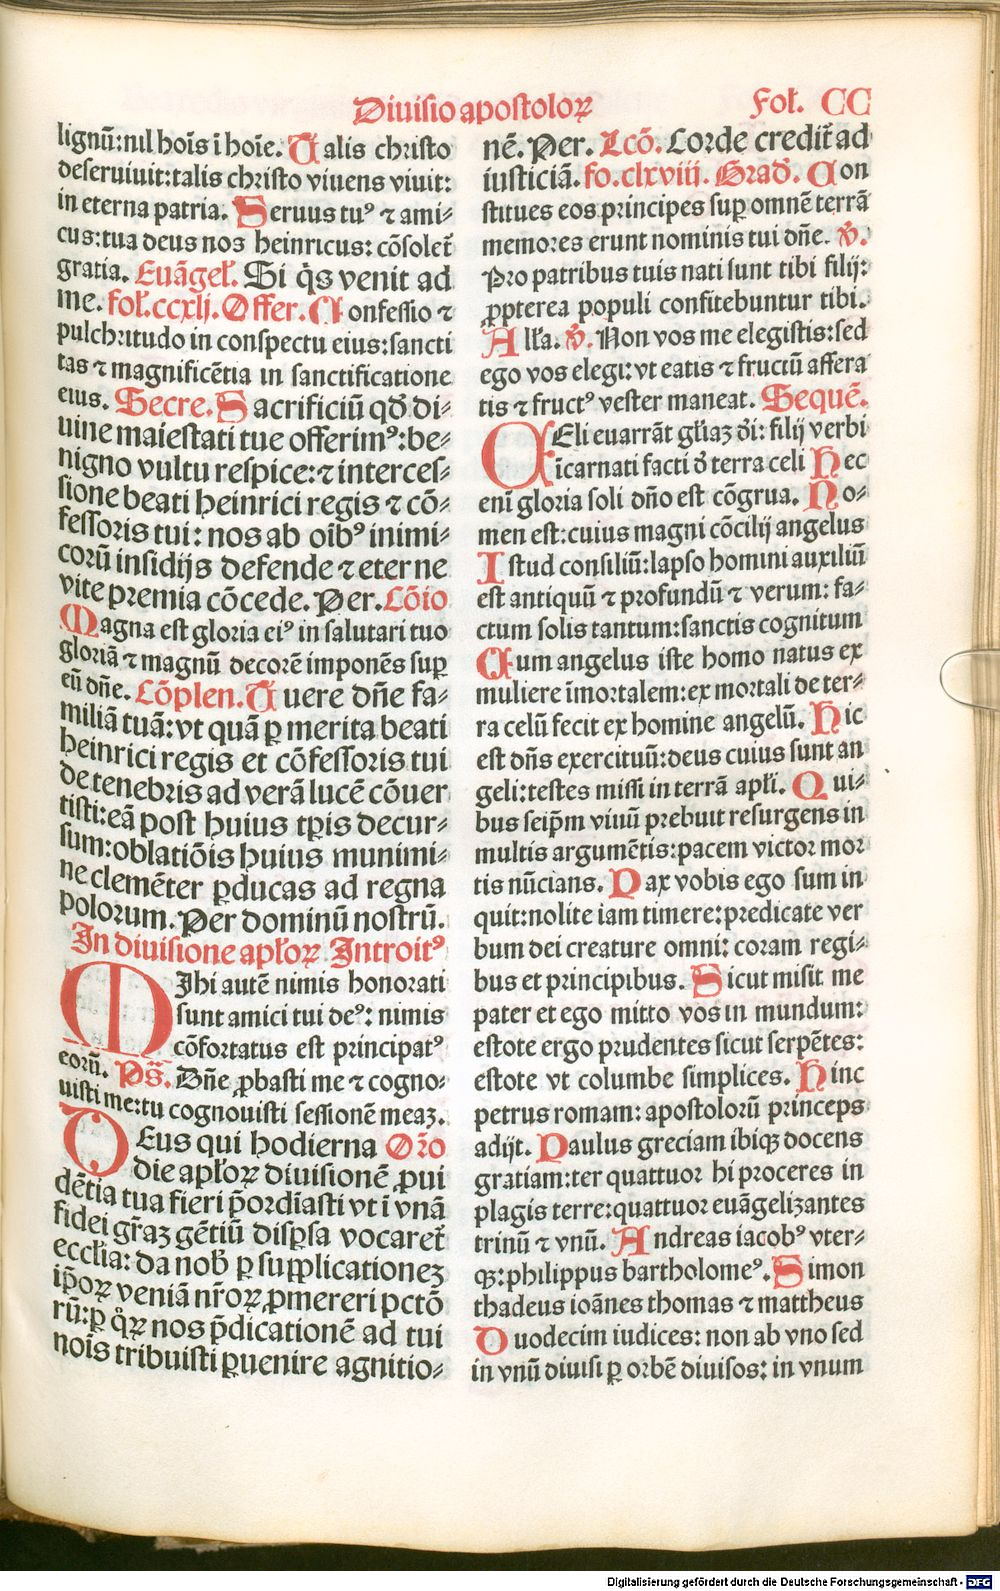 Diuisio apostoloꝝ Fol. CC
lignũ: nil hoĩs ĩ hoĩe. Talis christo
deseruiuit: talis christo viuens viuit:
in eterna patria. Seruus tuꝰ ⁊ ami⸗
cus: tua deus nos heinricus: cõsolet̃
gratia. Euãgel̃. Si q̃s venit ad
me. fol̃. ccxlj. Offer. Confessio ⁊
pulchritudo in conspectu eius: sancti
tas ⁊ magnificẽtia in sanctificatione
eius. Secre. Sacrificiũ qđ di⸗
uine maiestati tue offerimꝰ: be⸗
nigno vultu respice: ⁊ interces⸗
sione beati heinrici regis ⁊ cõ⸗
fessoris tui: nos ab oĩbꝰ inimi⸗
corũ insidijs defende ⁊ eterne
vite premia cõcede. Per. Cõio
Magna est gloria eiꝰ in salutari tuo
gloriã ⁊ magnũ decorẽ imponẽs suꝑ
eũ dñe. Cõplen. Tuere dñe fa⸗
miliã tuã: vt quã ꝑ merita beati
heinrici regis et cõfessoris tui
de tenebris ad verã lucẽ cõuer
tisti: eã post huius tꝑis decur⸗
sum: oblatiõis huius munimi⸗
ne clemẽter ꝑducas ad regna
polorum. Per dominũ nostrũ.
In diuisione apl̃oꝝ Introitꝰ
MIhi autẽ nimis honorati
sunt amici tui deꝰ: nimis
cõfortatus est principatꝰ
eorũ. Ps̃. Dñe ꝓbasti me ⁊ cogno⸗
uisti me: tu cognouisti sessionẽ meaꝫ.
DEus qui hodierna Orõ
die apl̃oꝝ diuisionẽ ꝓui
dẽtia tua fieri p̃ordĩasti vt ĩ vnã
fidei gr̃aꝫ gẽtiũ disꝑsa vocaret̃
ecclĩa: da nob̃ ꝑ supplicationeꝫ
ip̃oꝝ veniã nr̃oꝝ ꝓmereri pctõ
rũ: ꝑ q̊ꝝ nos p̃dicationẽ ad tui
noĩs tribuisti ꝑuenire agnitio⸗
nẽ. Per. Lcõ. Corde credit̃ ad
iusticiã. fo. clxviij. Građ. Con
stitues eos principes suꝑ omnẽ terrã
memores erunt nominis tui dñe. ℣.
Pro patribus tuis nati sunt tibi filij:
ꝓpterea populi confitebuntur tibi.
All̃a. ℣. Non vos me elegistis: sed
ego vos elegi: vt eatis ⁊ fructũ affera
tis ⁊ fructꝰ vester maneat. Sequẽ.
CEli enarrãt gl̃iaꝫ đi: filij verbi
ĩcarnati facti đ terra celi Hec
enĩ gloria soli dño est cõgrua. No⸗
men est: cuius magni cõcilij angelus
Istud consiliũ: lapso homini auxiliũ
est antiquũ ⁊ profundũ ⁊ verum: fa⸗
ctum solis tantum: sanctis cognitum
Cum angelus iste homo natus ex
muliere ĩmortalem: ex mortali de ter⸗
ra celũ fecit ex homine angelũ. Hic
est dñs exercituũ: deus cuius sunt an
geli: testes missi in terrã apl̃i. Qui⸗
bus seip̃m viuũ prebuit resurgens in
multis argumẽtis: pacem victor mor
tis nũcians. Pax vobis ego sum in
quit: nolite iam timere: predicate ver
bum dei creature omni: coram regi⸗
bus et principibus. Sicut misit me
pater et ego mitto vos in mundum:
estote ergo prudentes sicut serpẽtes:
estote vt columbe simplices. Hinc
petrus romam: apostolorũ princeps
adijt. Paulus greciam ibiqꝫ docens
gratiam: ter quattuor hi proceres in
plagis terre: quattuor euãgelizantes
trinũ ⁊ vnũ. Andreas iacobꝰ vter⸗
qꝫ: philippus bartholomeꝰ. Simon
thadeus ioãnes thomas ⁊ mattheus
Duodecim iudices: non ab vno sed
in vnũ diuisi ꝑ orbẽ diuisos: in vnum
Digitalisierung gefördert durch die Deutsche Forschungsgemeinschaft - DFG